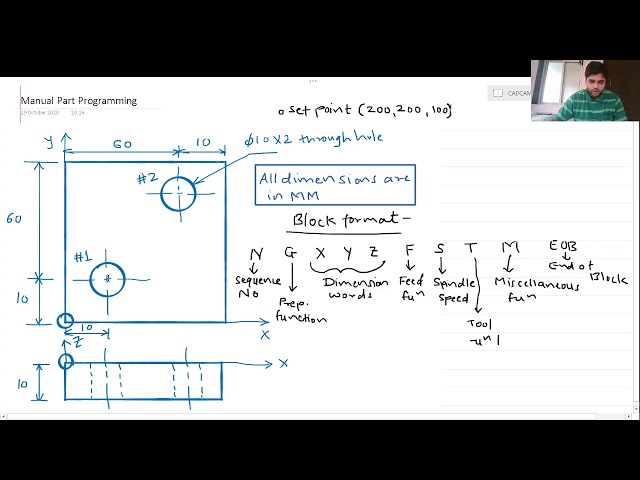 Manual Part Programming
19 October 2020 10:16
CADCAM
set point (200,200,100)
Y
60
10
ø10 X 2 through hole
#2
All dimensions are
in MM
60
Block format -
N G X Y Z F S T M EOB
#1
Sequence
No
Prep.
function
Dimension
words
Feed
fun
Spindle
speed
Miscellaneous
fun
End of
Block
Tool
10
10
X
Z
X
10